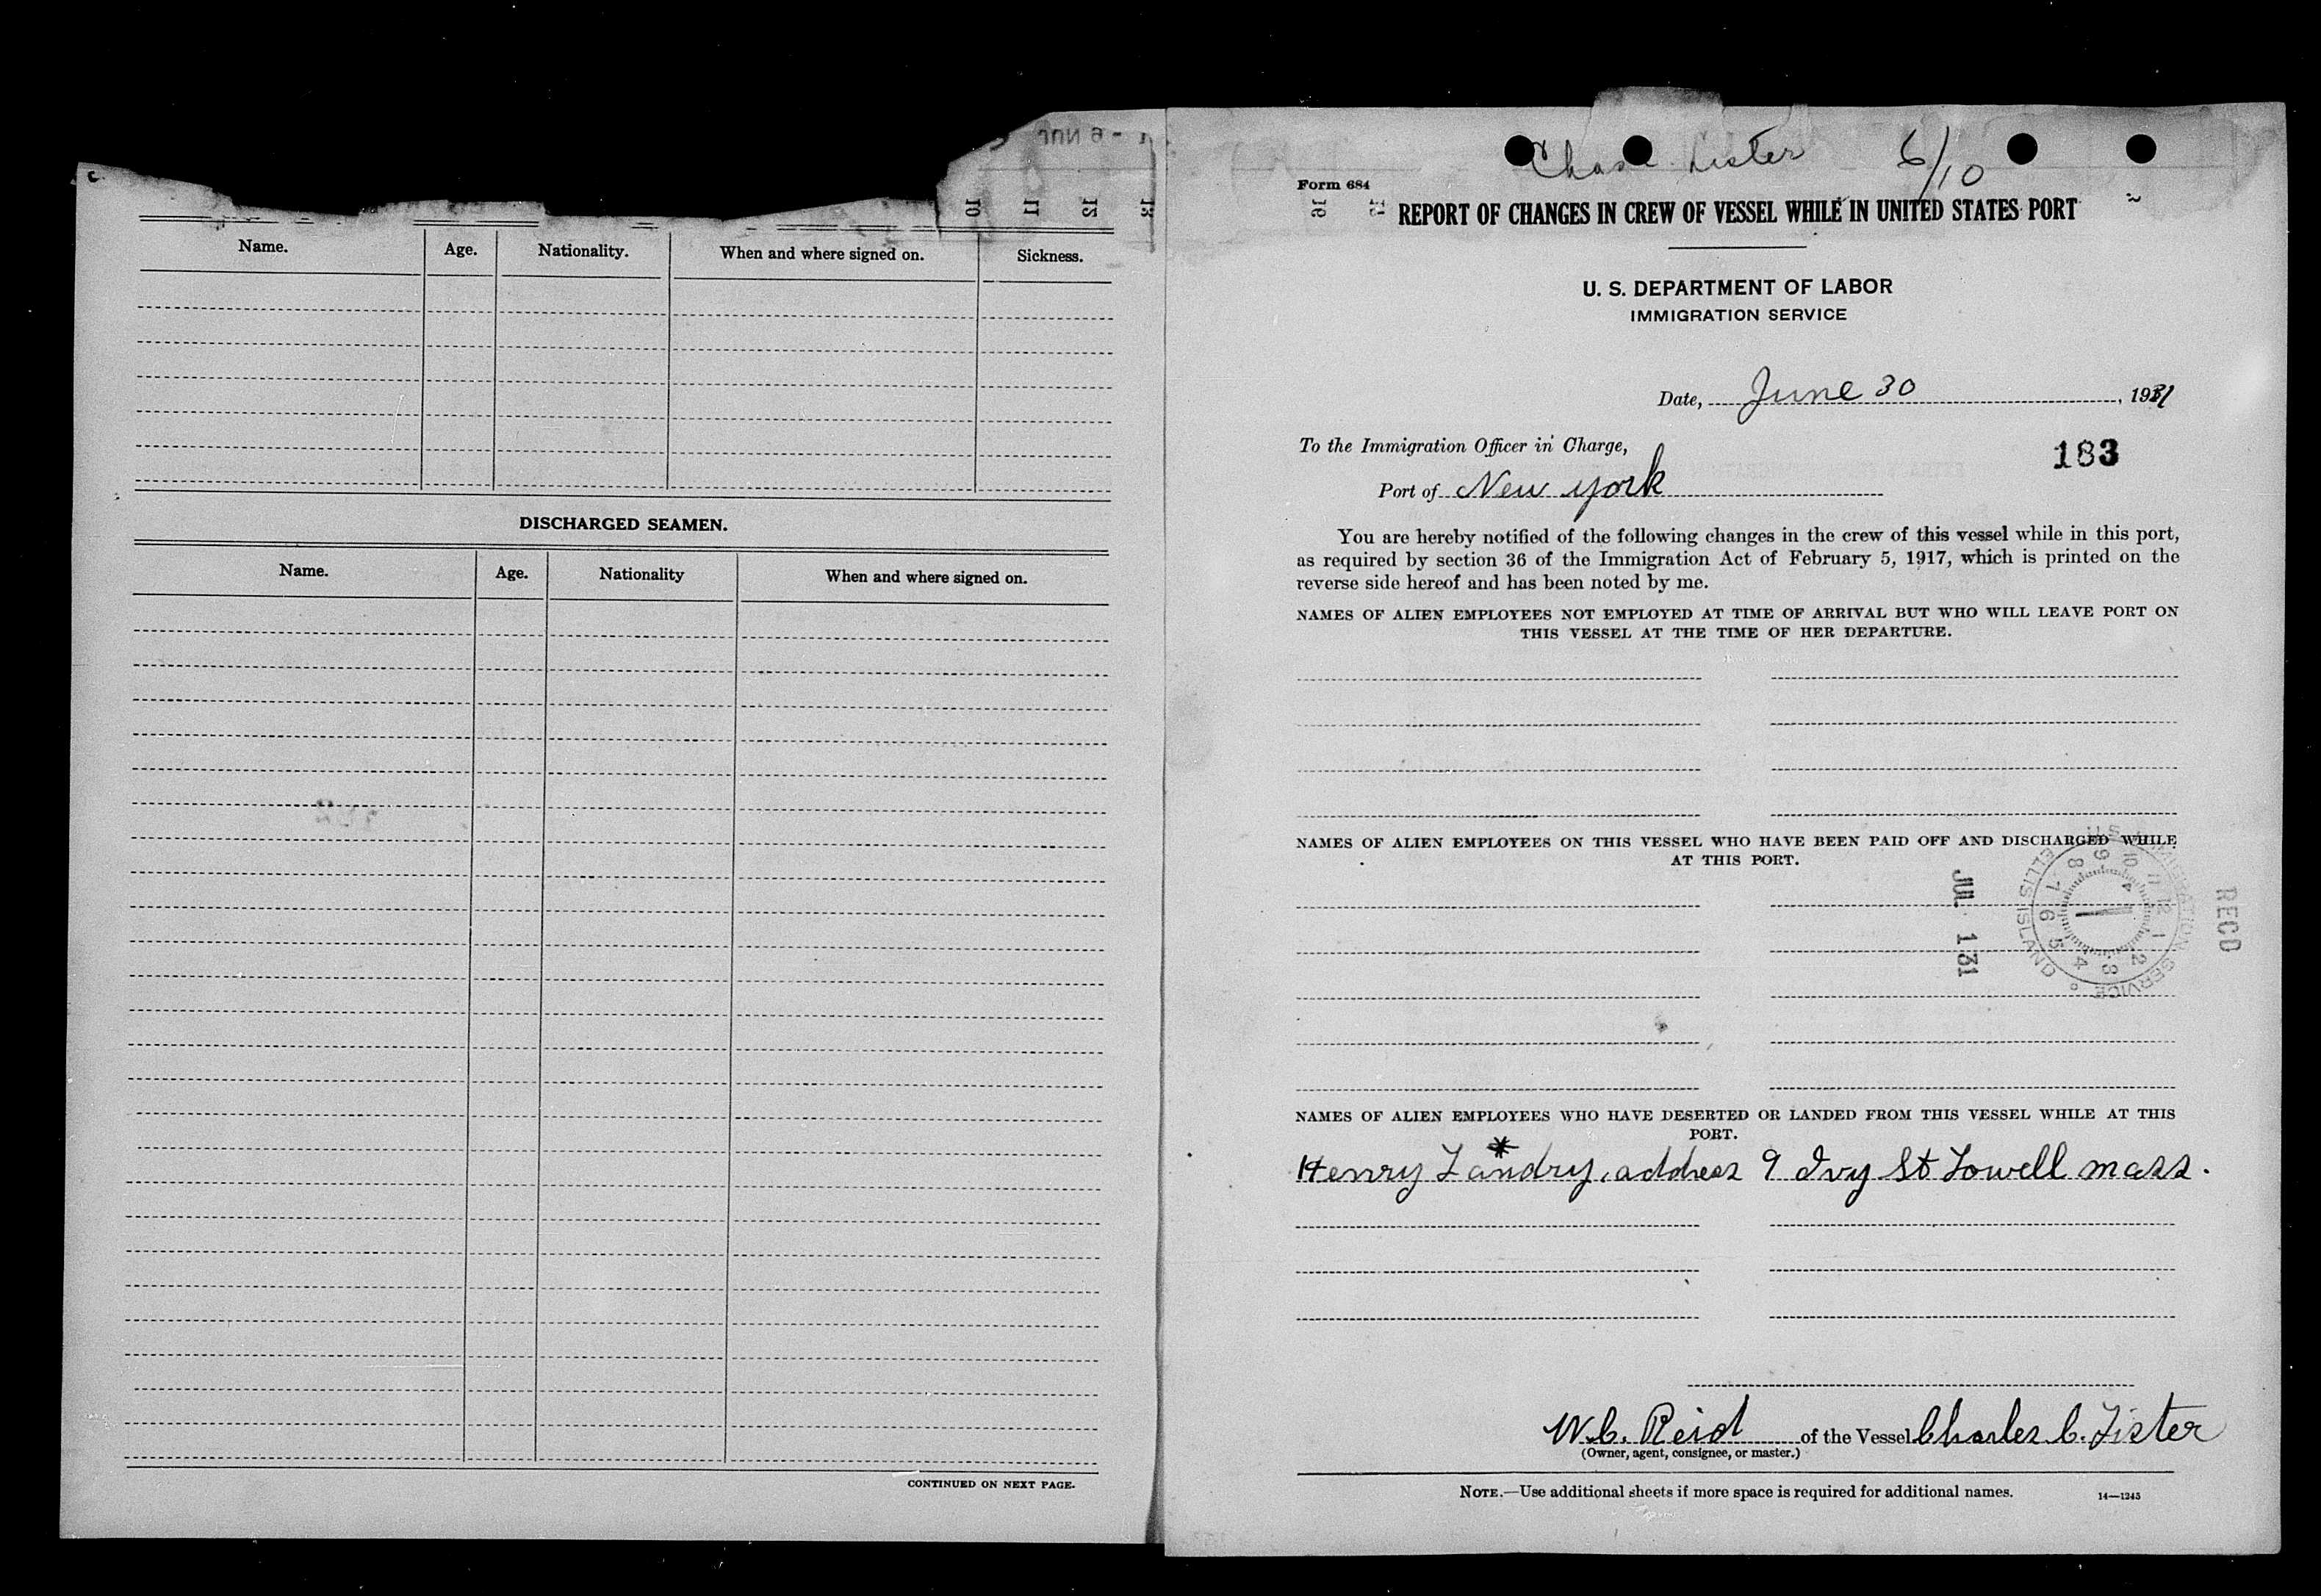 Name. Age. Nationality. When and where signed on. Sickness.
DISCHARGED SEAMEN.
Name. Age. Nationality When and where signed on.
CONTINUED ON NEXT PAGE.
10 11 12 13
Chas Lister 6/10
Form 684
REPORT OF CHANGES IN CREW OF VESSEL WHILE IN UNITED STATES PORT
U. S. DEPARTMENT OF LABOR
IMMIGRATION SERVICE
Date, June 30, 1931
To the Immigration Officer in Charge,
183
Port of New york
You are hereby notified of the following changes in the crew of this vessel while in this port,
as required by section 36 of the Immigration Act of February 5, 1917, which is printed on the
reverse side hereof and has been noted by me.
NAMES OF ALIEN EMPLOYEES NOT EMPLOYED AT TIME OF ARRIVAL BUT WHO WILL LEAVE PORT ON
THIS VESSEL AT THE TIME OF HER DEPARTURE.
NAMES OF ALIEN EMPLOYEES ON THIS VESSEL WHO HAVE BEEN PAID OFF AND DISCHARGED WHILE
AT THIS PORT.
RECD
U.S. IMMIGRATION SERVICE
ELLIS ISLAND
12 1 2 3 4 5 6 7 8 9 10 11
JUL 1 31
NAMES OF ALIEN EMPLOYEES WHO HAVE DESERTED OR LANDED FROM THIS VESSEL WHILE AT THIS
PORT.
*
Henry Landry, address 9 Ivy St Lowell mass.
W.C. Reid of the Vessel Charles C. Lister
(Owner, agent, consignee, or master.)
NOTE.—Use additional sheets if more space is required for additional names.
14—1245